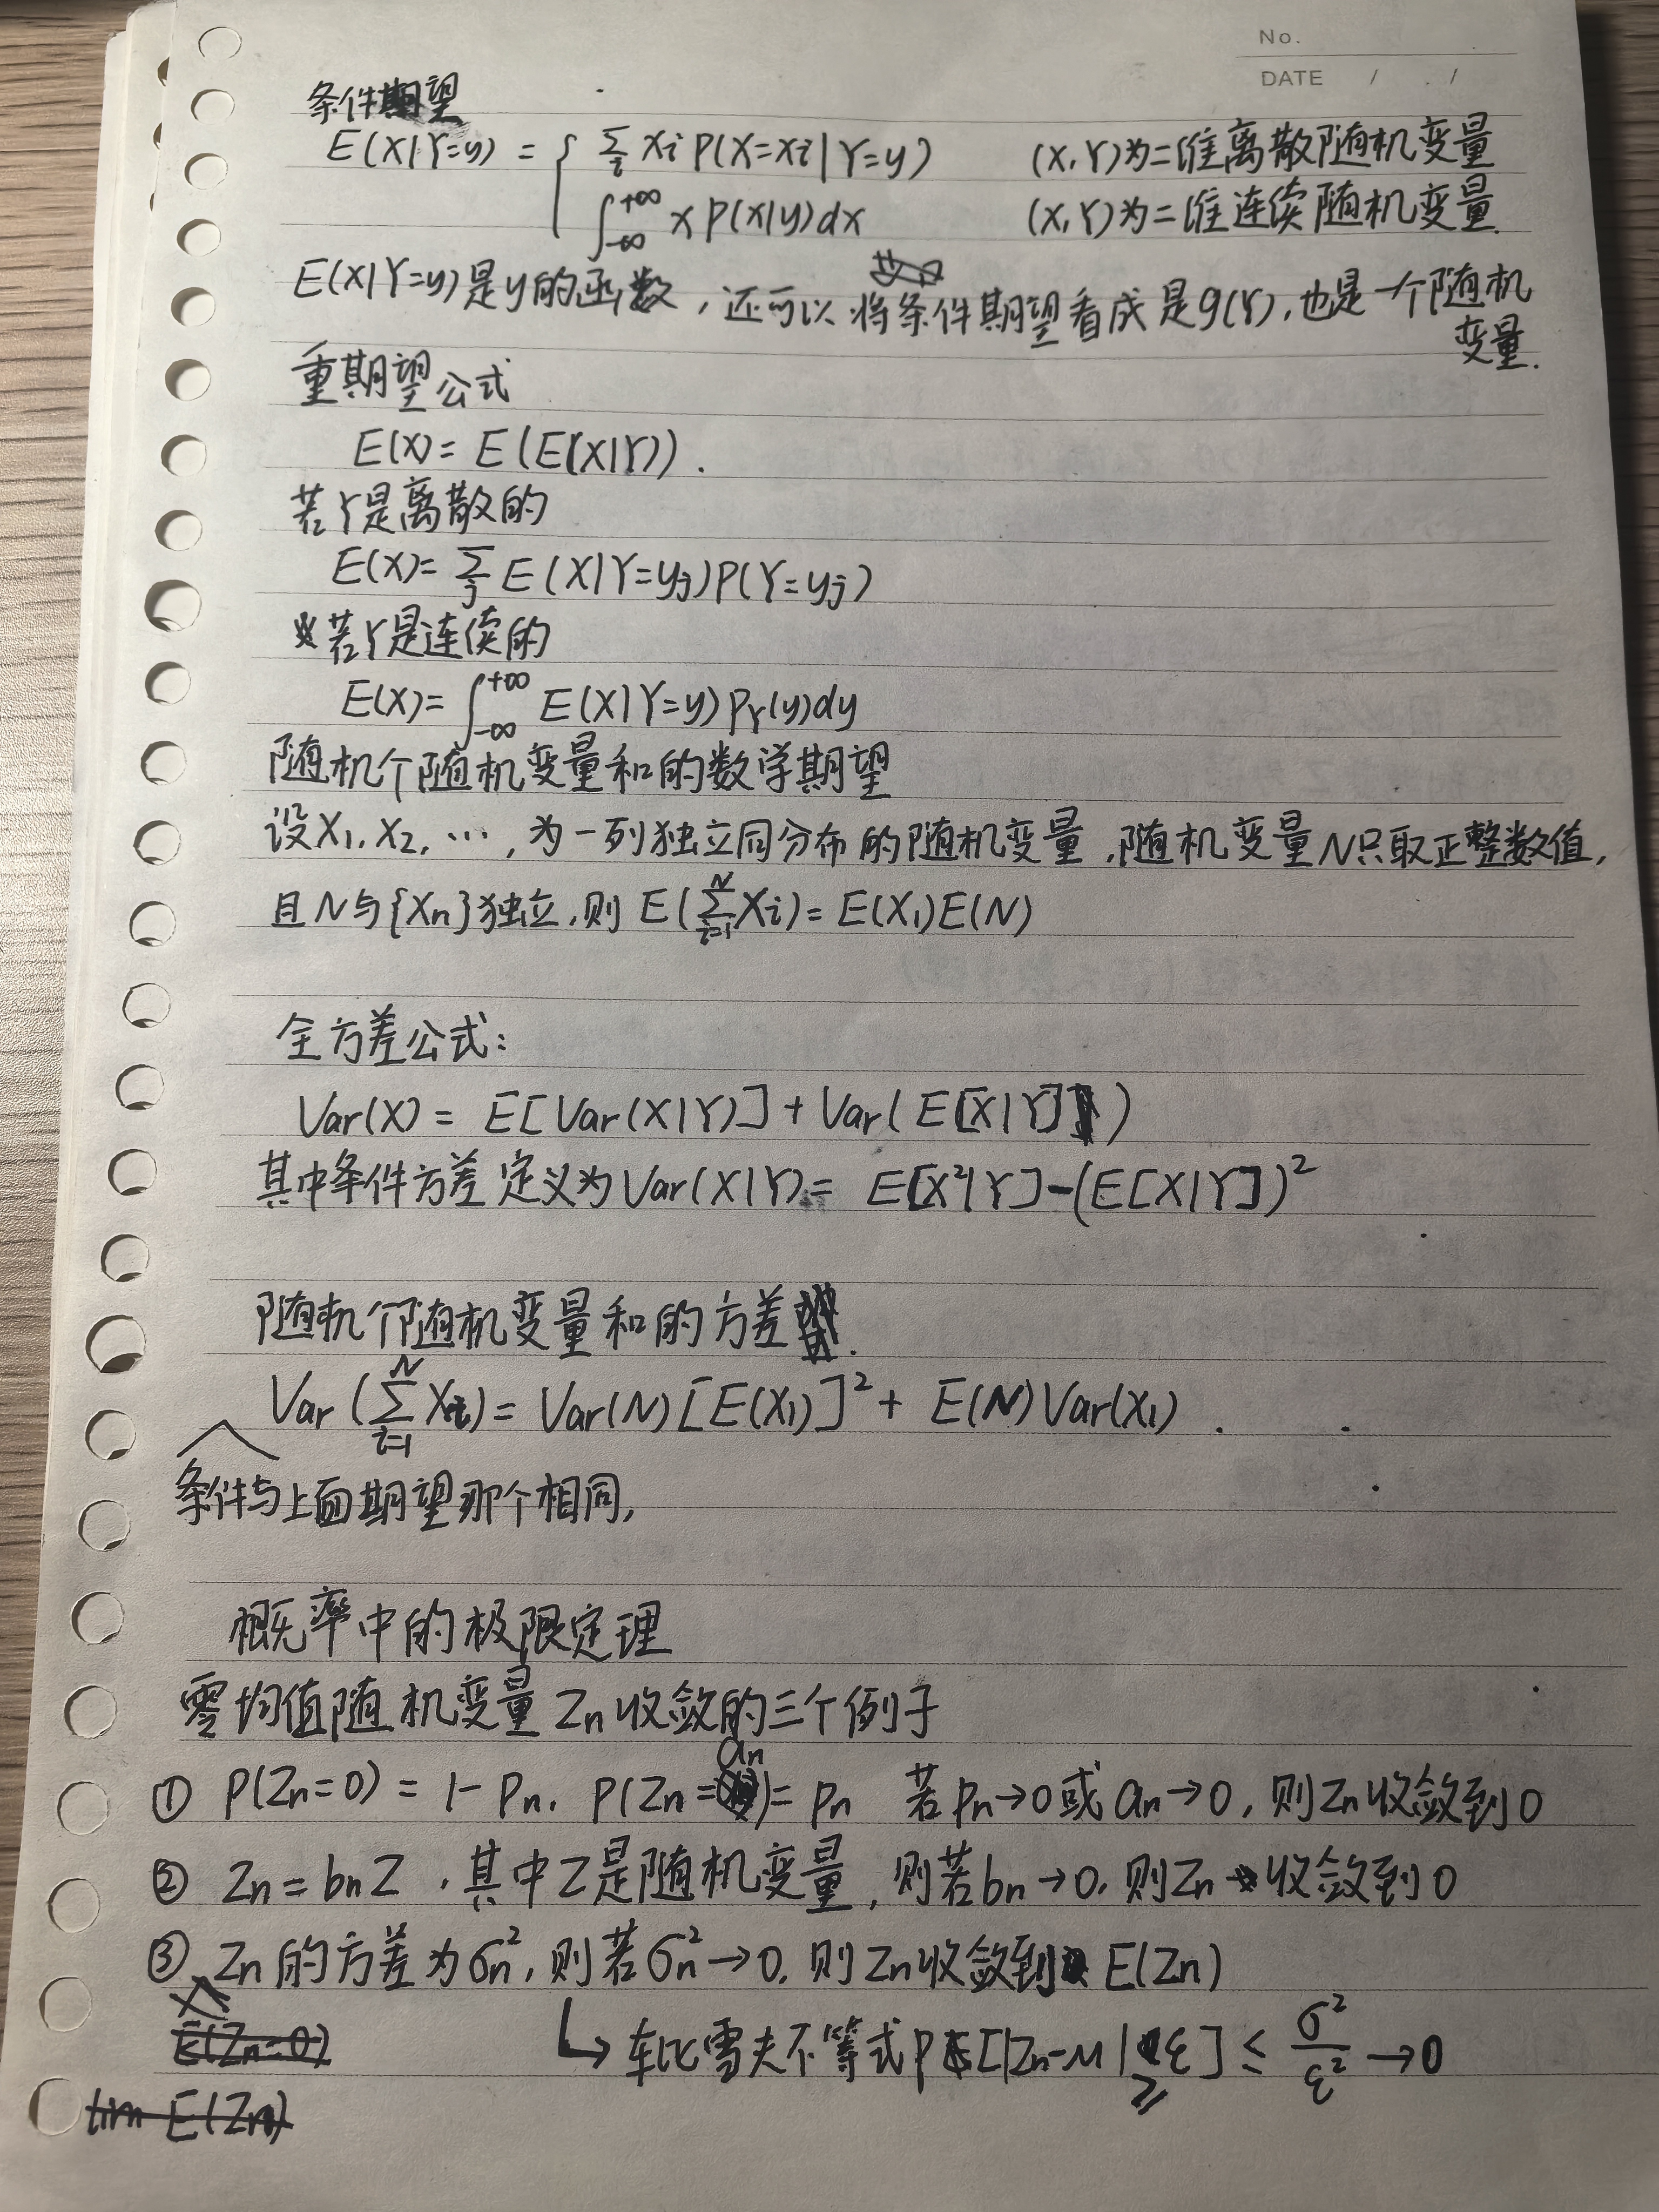 No.
DATE / . /
条件期望
E(X|Y=y) = { Σ_i xi P(X=xi|Y=y) (X,Y)为二维离散随机变量
∫_{-∞}^{+∞} x p(x|y)dx (X,Y)为二维连续随机变量.
E(X|Y=y)是y的函数,还可以将条件期望看成是g(Y),也是一个随机
变量.
重期望公式
E(X)= E(E(X|Y)).
若Y是离散的
E(X)= Σ_j E(X|Y=yj)P(Y=yj)
若Y是连续的
E(X)= ∫_{-∞}^{+∞} E(X|Y=y) p_Y(y)dy
随机个随机变量和的数学期望
设X₁,X₂,…,为一列独立同分布的随机变量,随机变量N只取正整数值,
且N与{Xn}独立,则 E(Σ_{i=1}^{N} Xi)= E(X₁)E(N)
全方差公式:
Var(X) = E[Var(X|Y)] + Var(E[X|Y])
其中条件方差定义为Var(X|Y)= E[X²|Y]-(E[X|Y])²
随机个随机变量和的方差.
Var(Σ_{i=1}^{N} Xi)= Var(N)[E(X₁)]² + E(N)Var(X₁).
条件与上面期望那个相同,
概率中的极限定理
零均值随机变量Zn收敛的三个例子
① P(Zn=0) = 1- Pn, P(Zn=an)= Pn 若Pn→0或an→0,则Zn收敛到0
② Zn=bnZ,其中Z是随机变量,则若bn→0,则Zn收敛到0
③ Zn的方差为σn²,则若σn²→0,则Zn收敛到E(Zn)
E(Zn=0)
↳ 车比雪夫不等式P[|Zn-μ|≥ε] ≤ σ²/ε² →0
lim E(Zn)